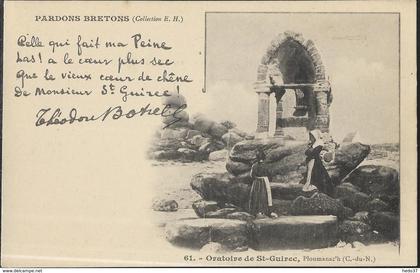 PARDONS BRETONS (Collection E. H.)
Celle qui fait ma Peine
Las! a le cœur plus sec
Que le vieux cœur de chêne
De Monsieur St Guirec!
Théodore Botrel
61. - Oratoire de St-Guirec, Ploumanac'h (C.-du-N.)